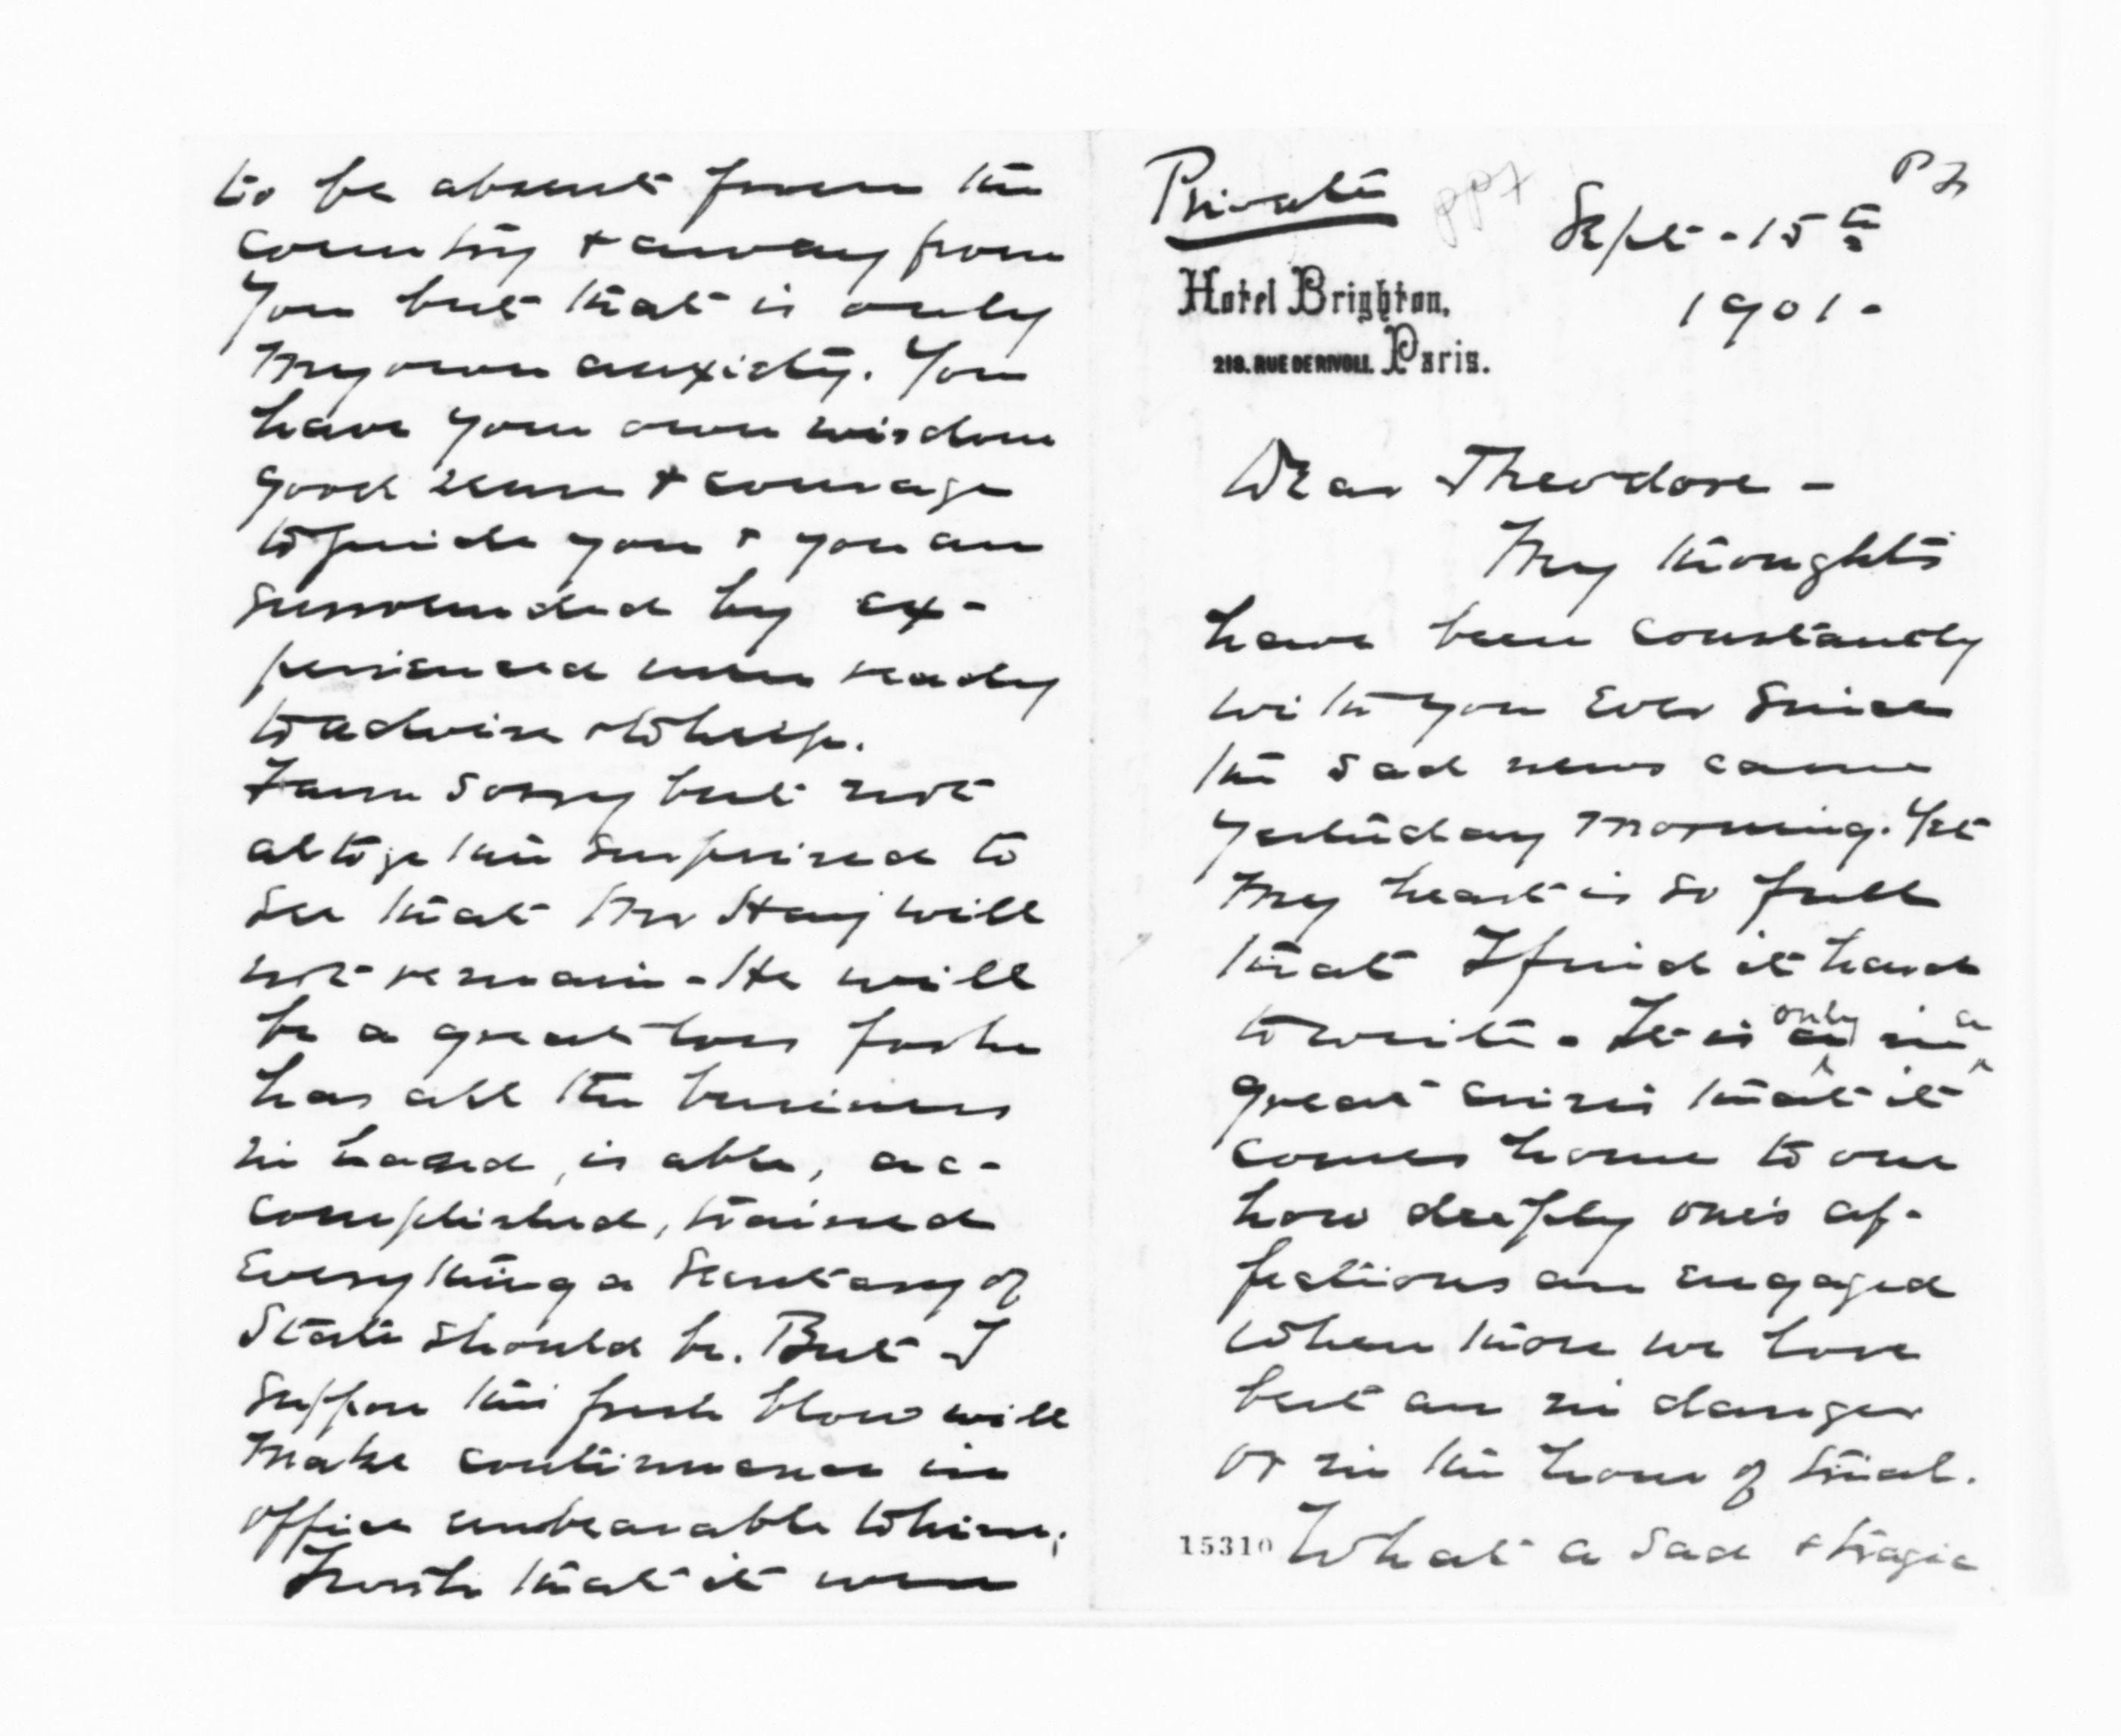 to be absent from the
country & away from
you but that is only
my own anxiety. You
have your own wisdom
good sense & courage
to guide you & you are
surrounded by ex-
perienced men ready
to advise & to help.
I am sorry but not
altogether surprised to
see that Mr Hay will
not remain - He will
be a great loss for he
has all the business
in hand, is able, ac-
complished, trained
everything a Secretary of
State should be. But I
suppose this fresh blow will
make continuance in
office unbearable to him;
I wish that it were
Private
ppf
P 2
Sept - 15th
1901 -
Hotel Brighton,
218. RUE DE RIVOLI. Paris.
Dear Theodore -
My thoughts
have been constantly
with you ever since
the sad news came
yesterday morning. Yet
my heart is so full
that I find it hard
to write - It is only in a
great crisis that it
comes home to one
how deeply one's af-
fections are engaged
when those we love
best are in danger
or in the hour of trial.
15310 What a sad & tragic